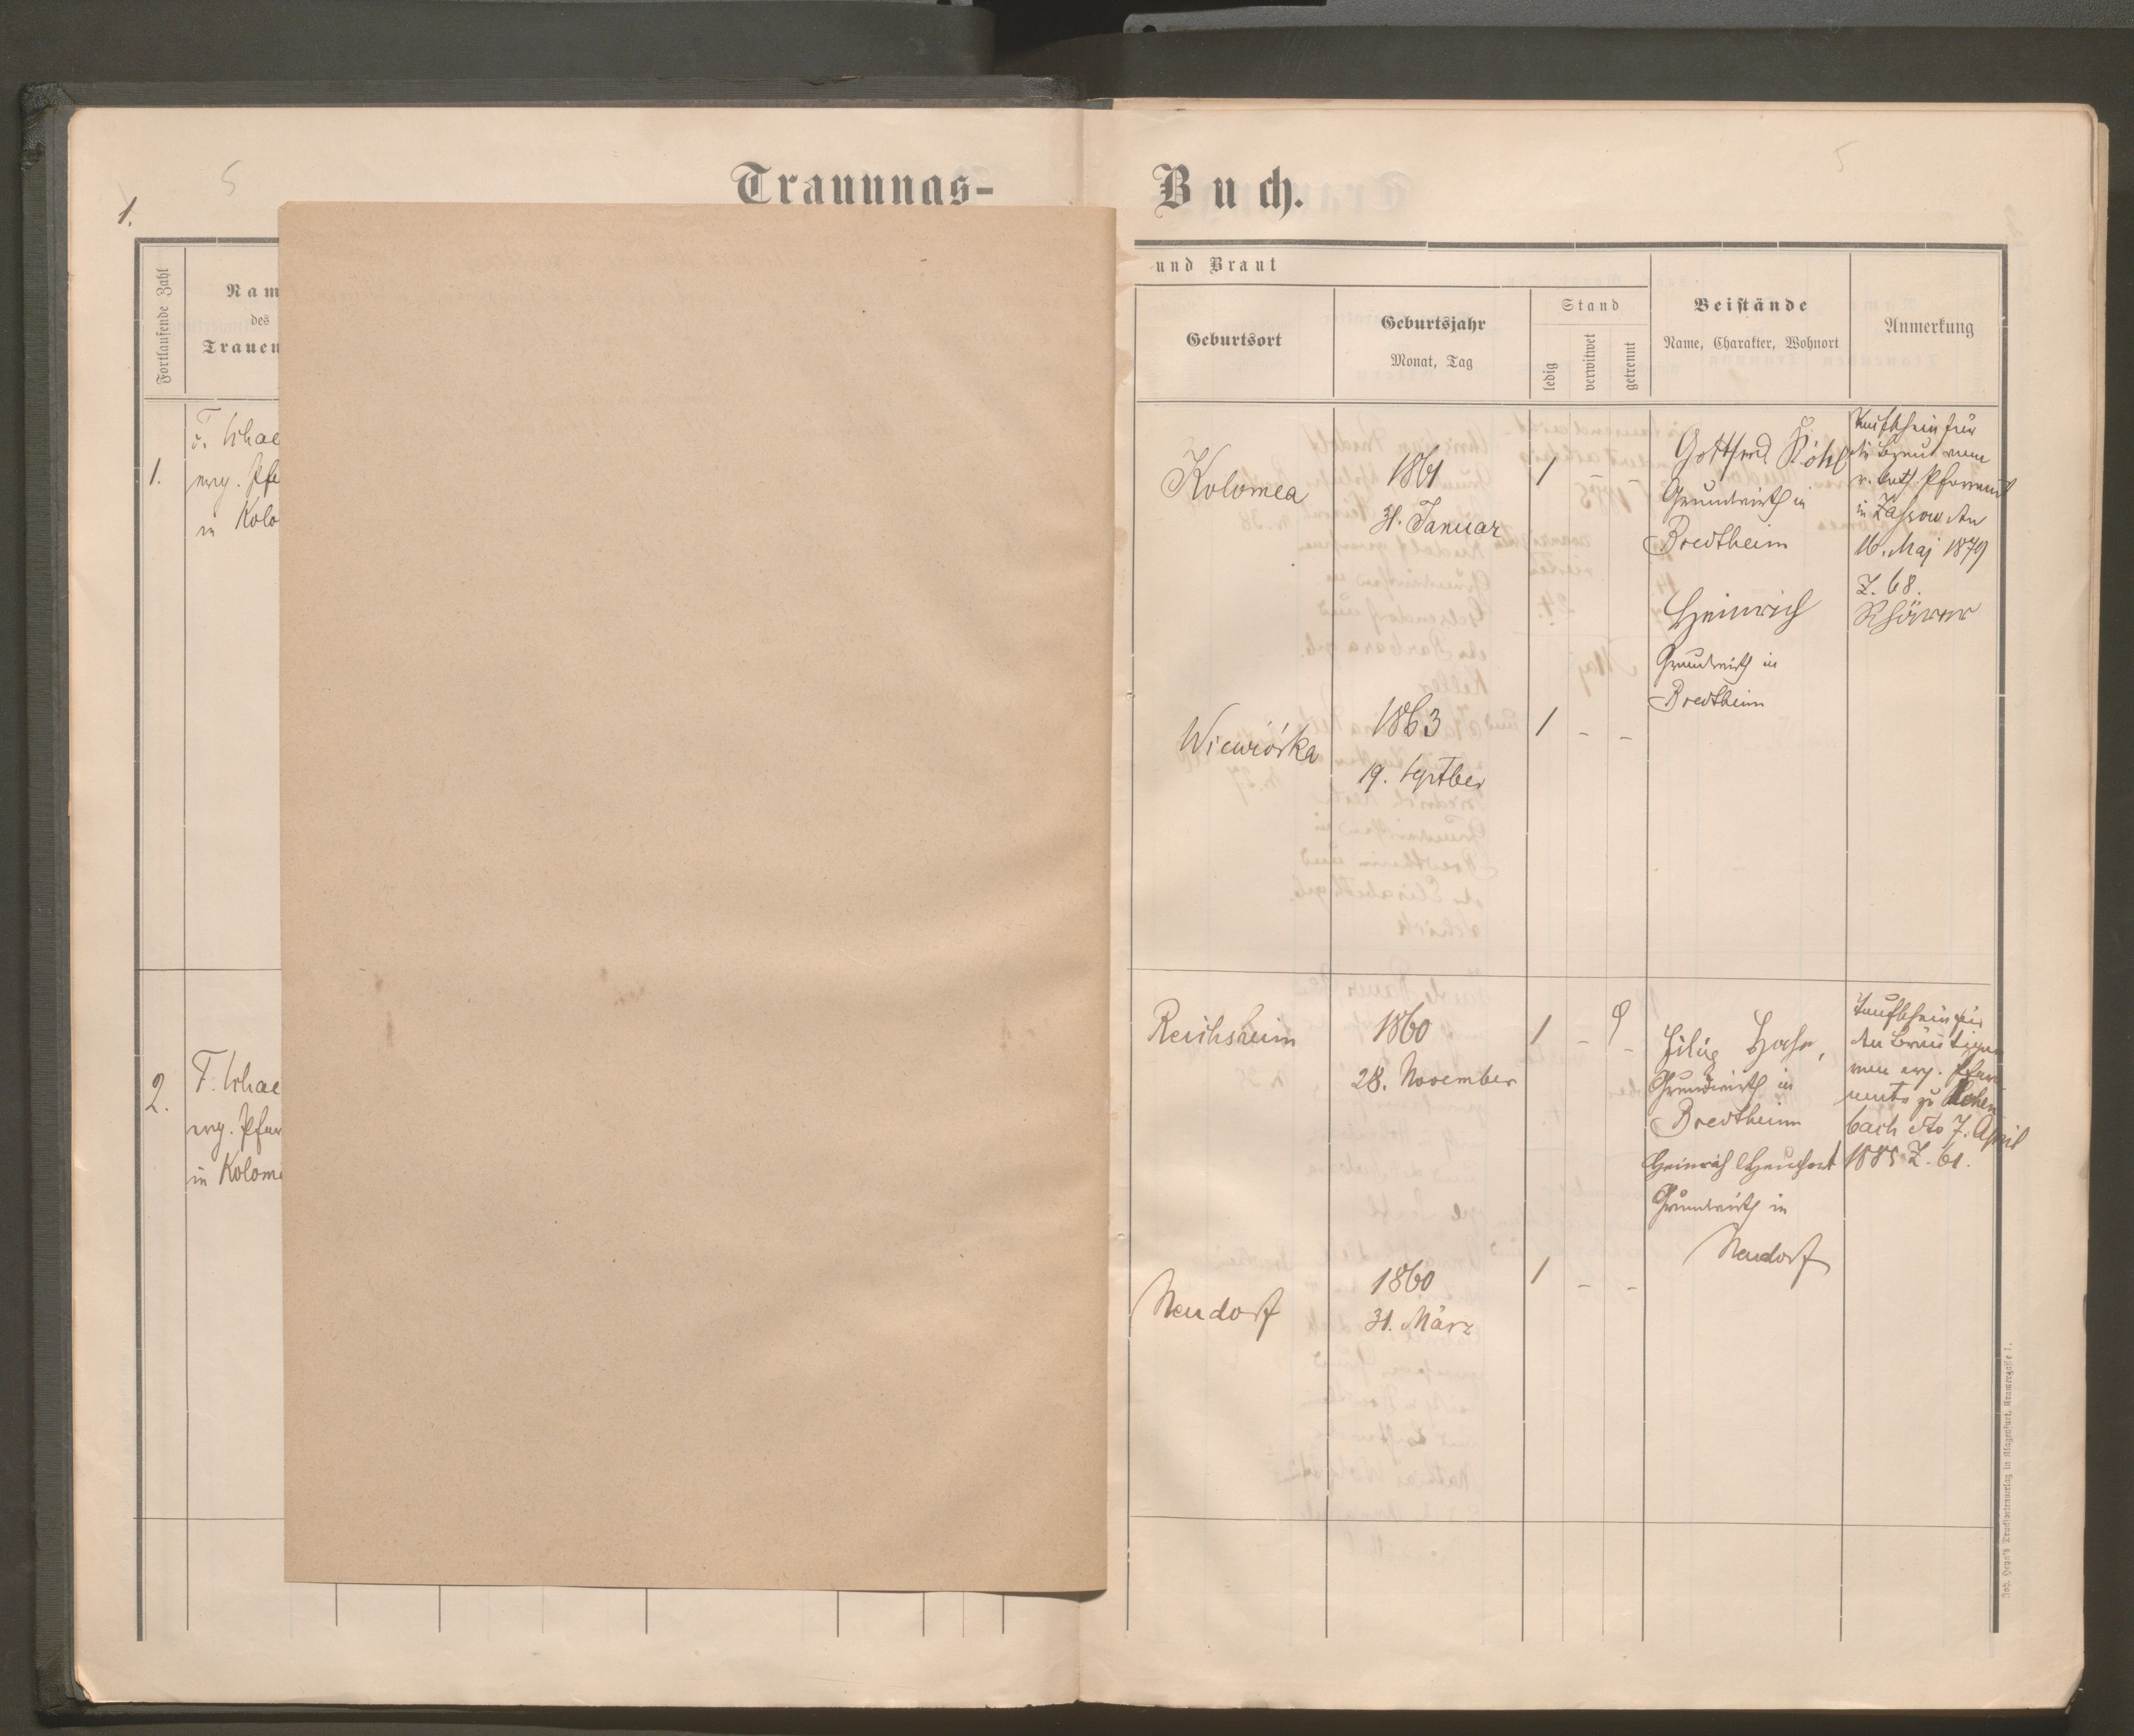 5
5
1.
Trauungs-
Buch.
Fortlaufende Zahl
Nam
des
Trauen
und Braut
Geburtsort
Geburtsjahr
Monat, Tag
Stand
ledig
verwitwet
getrennt
Beistände
Name, Charakter, Wohnort
Anmerkung
1.
F. Schae
evg. Pfa
in Kolo
Kolomea
1861
31. Januar
1 - -
Gottfried Köhl
Grundwirth in
Bredtheim
Heinrich
Grundwirth in
Bredtheim
Taufschein für
die Braut vom
r. kath. Pfarramt
in Zassow dto
16. Maj 1879
Z. 68.
Wiewiórka
1863
19. Septber
1 - -
2.
F. Schae
evg. Pfar
in Kolome
Reichsheim
1860
28. November
1 - -
Grundwirth in
Bredtheim
Heinrich
Grundwirth in
Neudorf
Taufschein für
den Bräutigam
vom evg. Pfarr-
amte zu Hohen
bach dto 7. April
1885 Z. 61.
Neudorf
1860
31. März
1 - -
Joh. Heyn's Drucksortenverlag in Klagenfurt, Kramergasse 1.